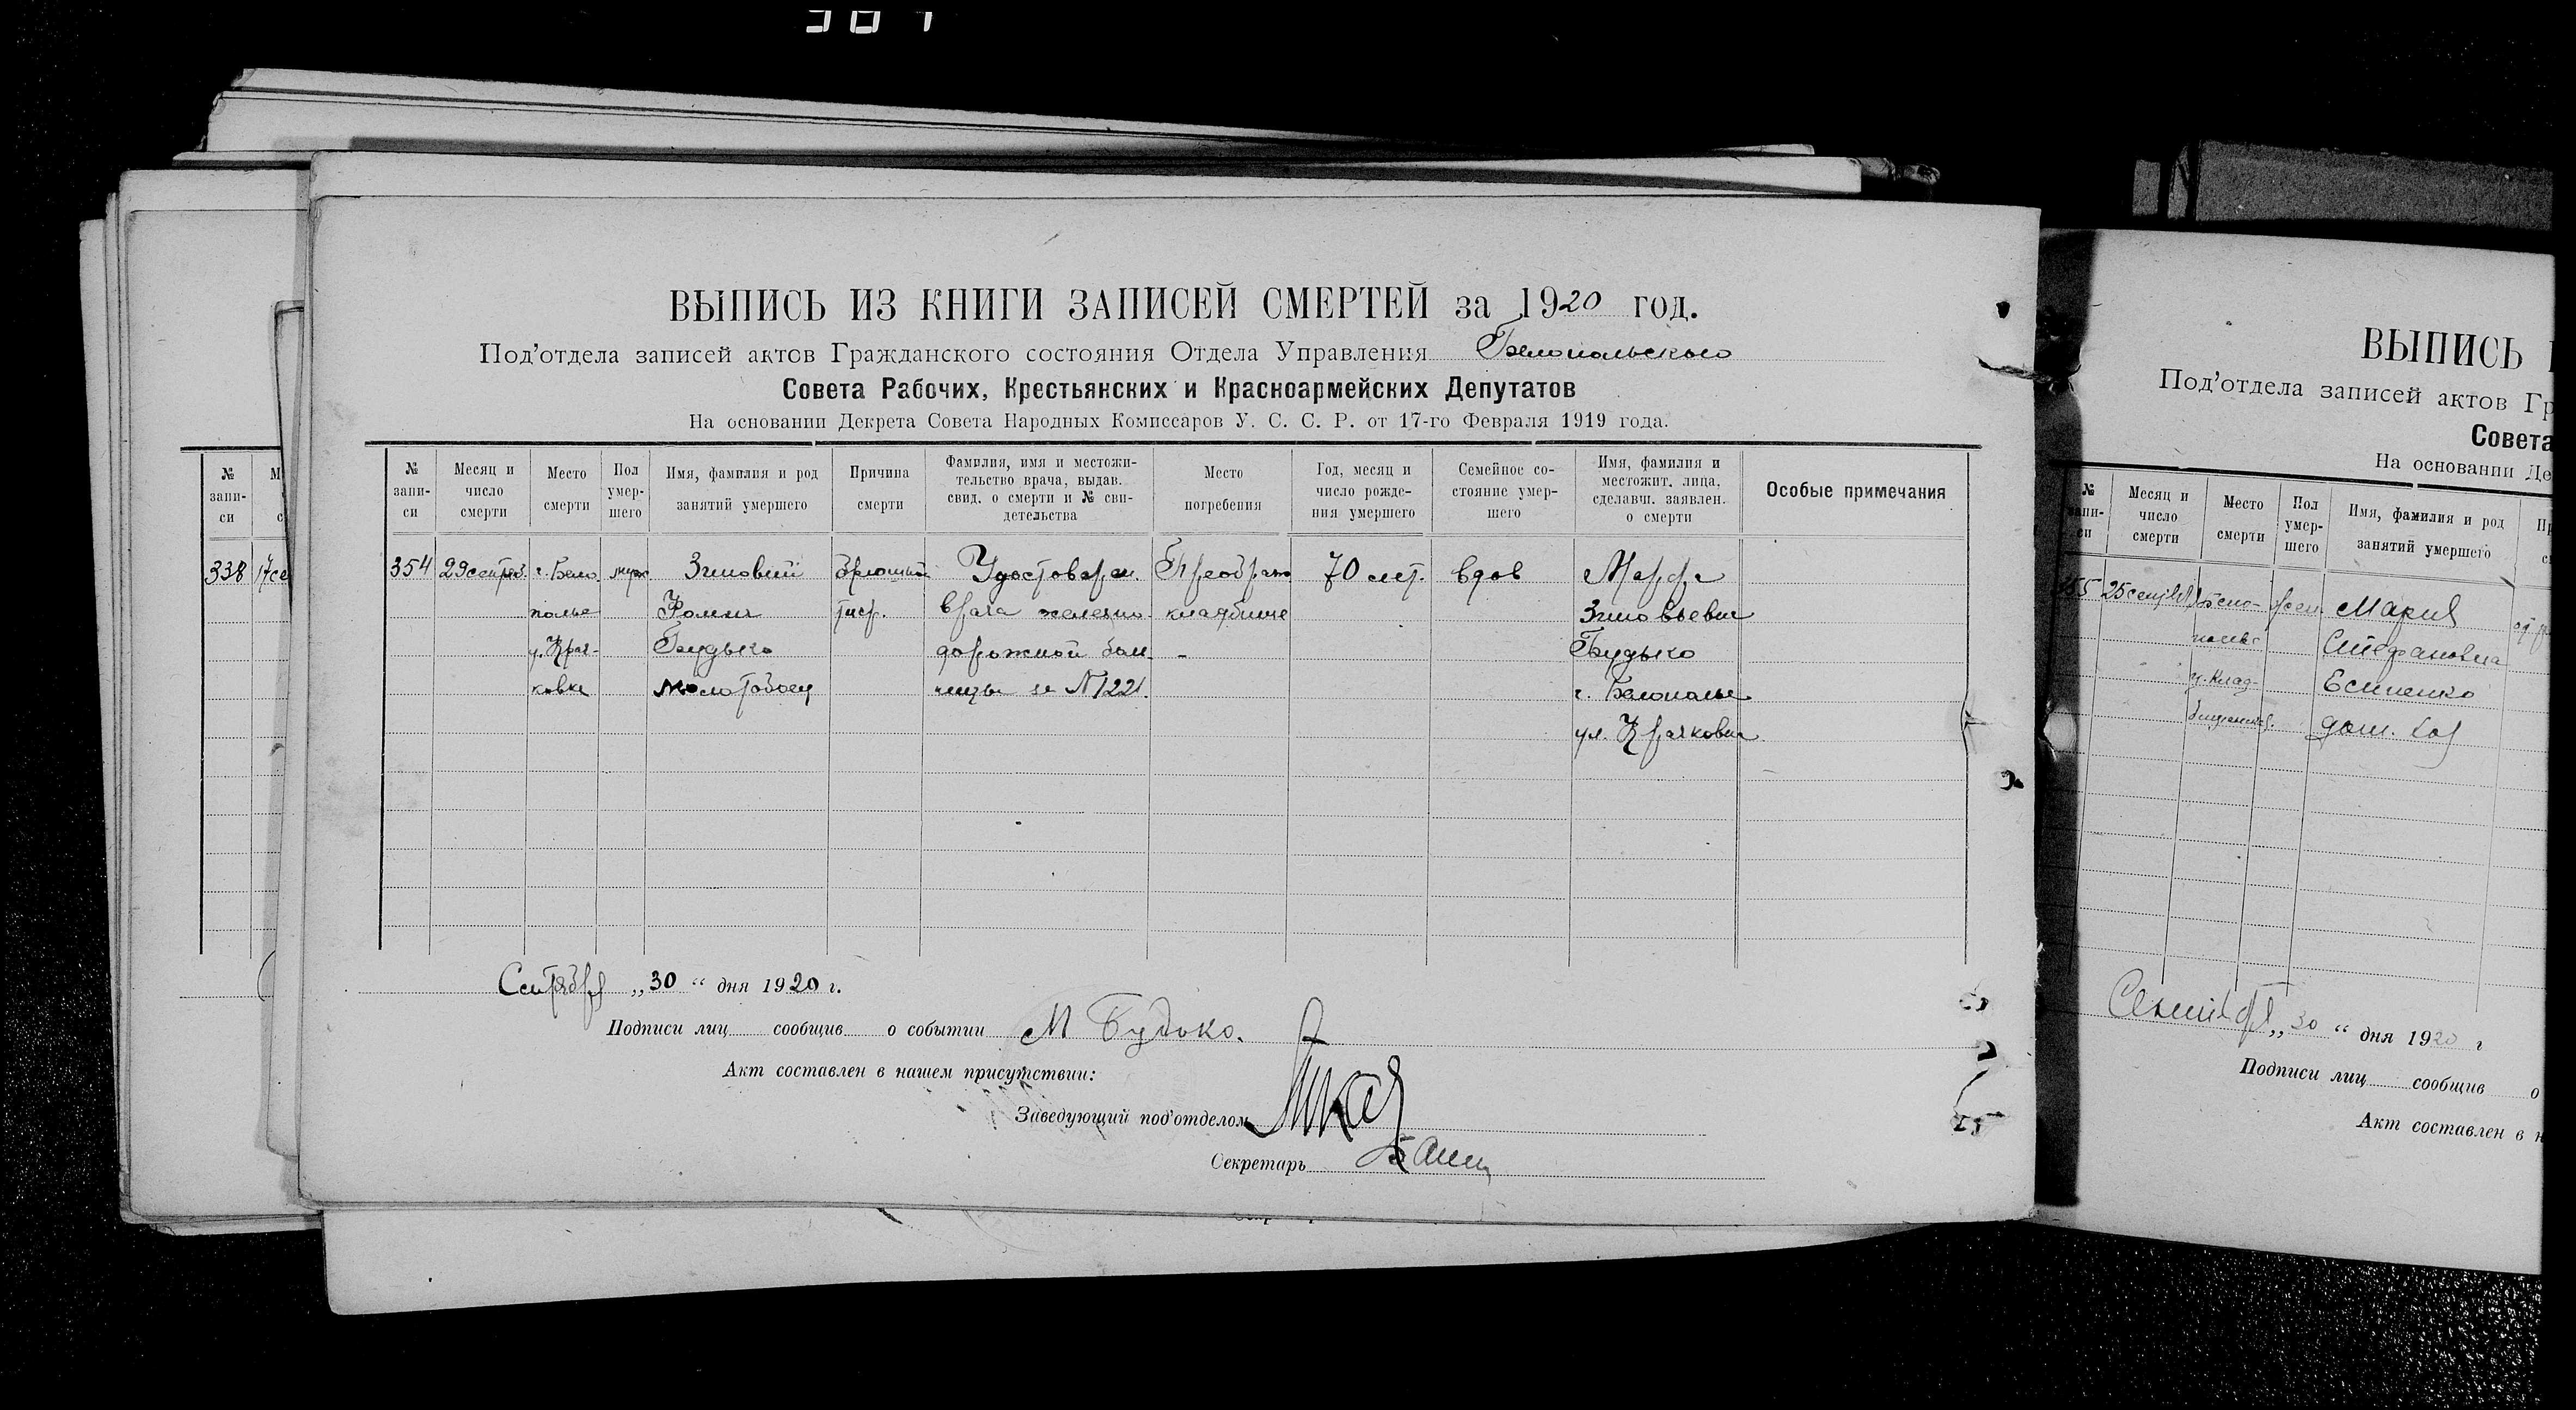 ВЫПИСЬ ИЗ КНИГИ ЗАПИСЕЙ СМЕРТЕЙ за 1920 год.
Под'отдела записей актов Гражданского состояния Отдела Управления Белопольского
Совета Рабочих, Крестьянских и Красноармейских Депутатов
На основании Декрета Совета Народных Комиссаров У. С. С. Р. от 17-го Февраля 1919 года.
№ запи-си
Месяц и число смерти
Место смерти
Пол умер-шего
Имя, фамилия и род занятий умершего
Причина смерти
Фамилия, имя и местожи-тельство врача, выдав. свид. о смерти и № сви-детельства
Место погребения
Год, месяц и число рожде-ния умершего
Семейное со-стояние умер-шего
Имя, фамилия и местожит. лица, сделавш. заявлен. о смерти
Особые примечания
354 29 сентяб. г. Бело муж Зиновий брюшной Удостоверен. Преображ 70 лет. вдов Марфа
полье Фомич тиф. врача железно кладбище Зиновьевна
у. Крач- Будько дорожной бол- Будько
ковка молотобоец ницы за N 1221. г. Белополье
ул. Крачковка
Сентября „30“ дня 1920 г.
Подписи лиц сообщив о событии М Будько.
Акт составлен в нашем присутствии:
Заведующий под'отделом
Секретарь
№ запи-си
338 17 се
ВЫПИСЬ
Под'отдела записей актов Гр
Совета
На основании Де
№ запи-си
Месяц и число смерти
Место смерти
Пол умер-шего
Имя, фамилия и род занятий умершего
355 25 сентяб Бело- жен Мария
полье Стефановна
у. Клад- Есипенко
дом. хоз
Сентября „30“ дня 1920 г
Подписи лиц сообщив о
Акт составлен в н